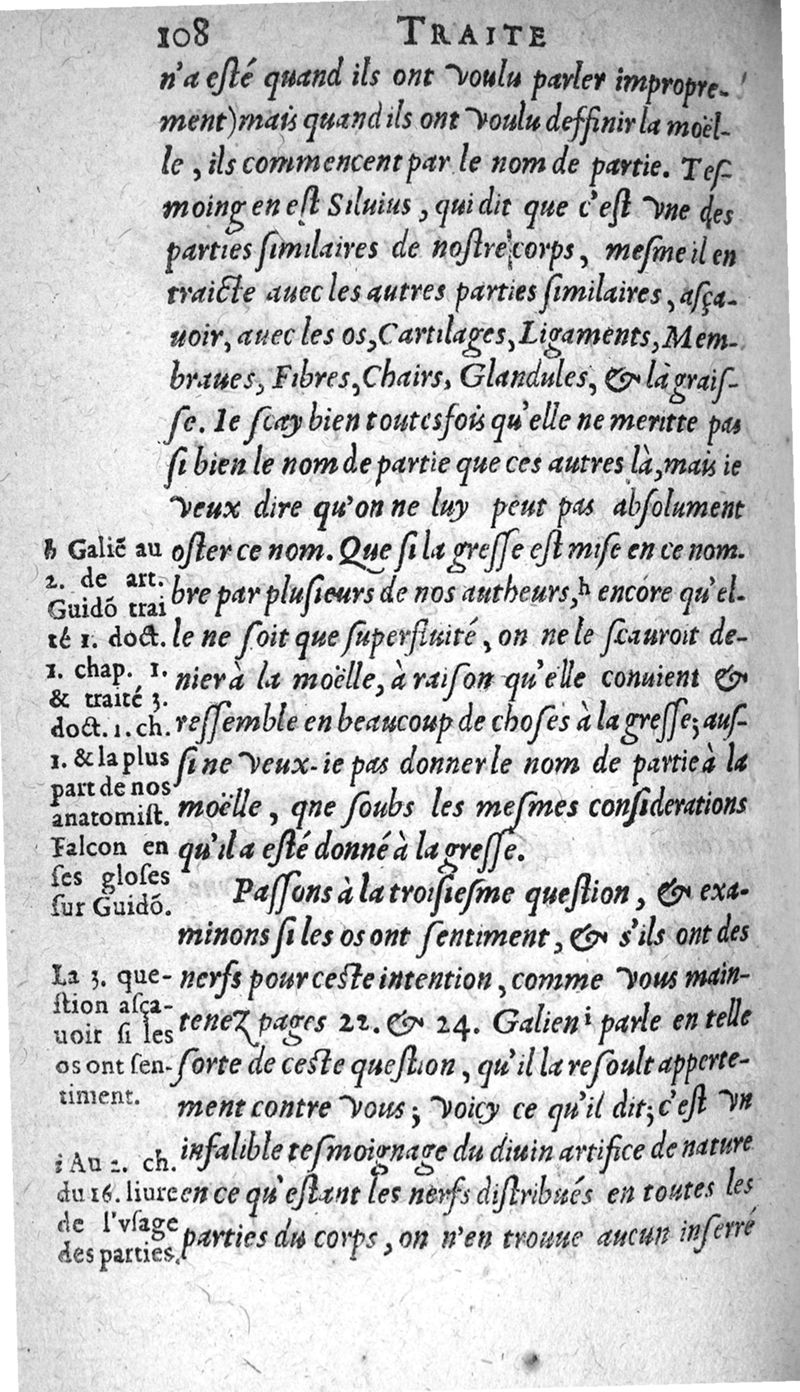 108 TRAITE
n'a esté quand ils ont voulu parler impropre-
ment) mais quand ils ont voulu deffinir la moël-
le, ils commencent par le nom de partie. Teſ-
moing en eſt Siluius, qui dit que c'eſt vne des
parties ſimilaires de noſtre corps, meſme il en
traicte auec les autres parties ſimilaires, aſça-
uoir, auec les os, Cartilages, Ligaments, Mem-
braues, Fibres, Chairs, Glandules, & là graiſ-
ſe. Ie ſcay bien toutesfois qu'elle ne meritte pas
ſi bien le nom de partie que ces autres là, mais ie
veux dire qu'on ne luy peut pas abſolument
oſter ce nom. Que ſi la greſſe eſt miſe en ce nom-
bre par pluſieurs de nos autheurs,ʰ encore qu'el-
le ne ſoit que ſuperfluité, on ne le ſcauroit de-
nier à la moëlle, à raiſon qu'elle conuient &
reſſemble en beaucoup de choſes à la greſſe; auſ-
ſi ne veux-ie pas donner le nom de partie à la
moëlle, qne ſoubs les meſmes conſiderations
qu'il a eſté donné à la greſſe.
Paſſons à la troiſieſme queſtion, & exa-
minons ſi les os ont ſentiment, & s'ils ont des
nerfs pour ceſte intention, comme vous main-
tenez pages 22. & 24. Galienⁱ parle en telle
ſorte de ceſte queſtion, qu'il la reſoult apperte-
ment contre vous; voicy ce qu'il dit; c'eſt vn
infalible teſmoignage du diuin artifice de nature
en ce qu'eſtant les nerfs diſtribués en toutes les
parties du corps, on n'en trouue aucun inſerré
h Galiē au
2. de art.
Guidō trai
té 1. doct.
1. chap. 1.
& traité 3.
doct. 1. ch.
1. & la plus
part de nos
anatomiſt.
Falcon en
ſes gloſes
ſur Guidō.
La 3. que-
ſtion aſça-
uoir ſi les
os ont ſen-
timent.
i Au 2. ch.
du 16. liure
de l'vſage
des parties.